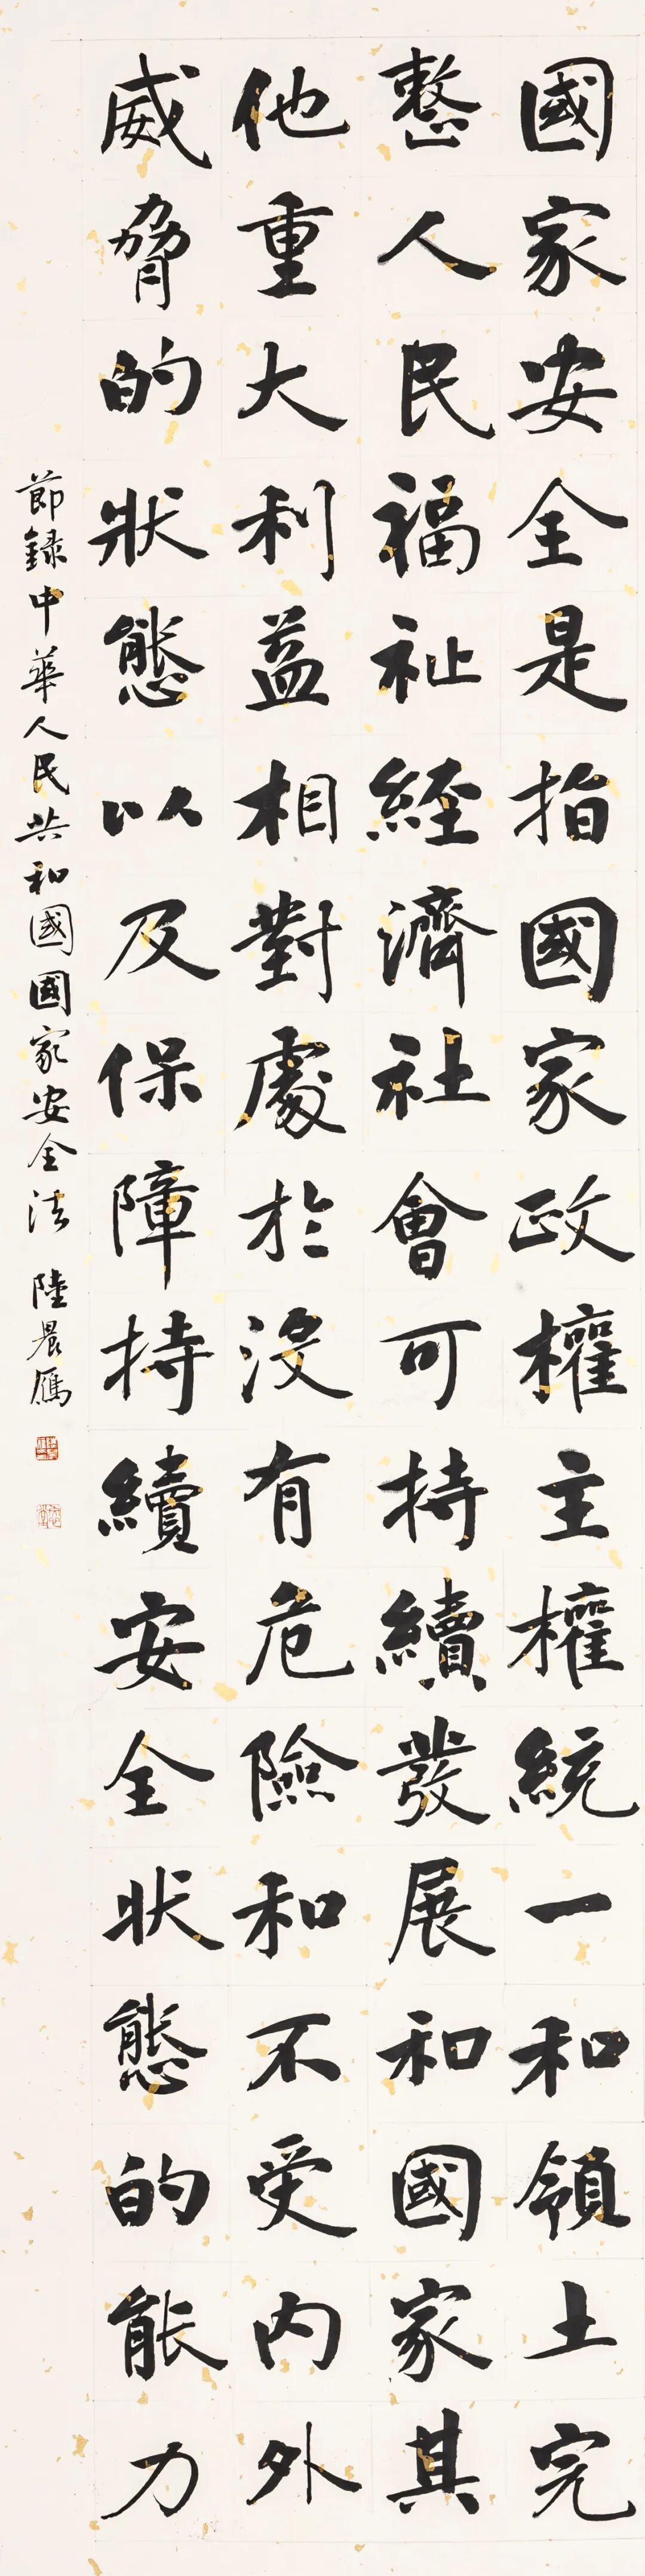 國家安全是指國家政權主權統一和領土完
整人民福祉經濟社會可持續發展和國家其
他重大利益相對處於没有危險和不受内外
威脅的狀態以及保障持續安全狀態的能力
節録中華人民共和國國家安全法 陸晨雁